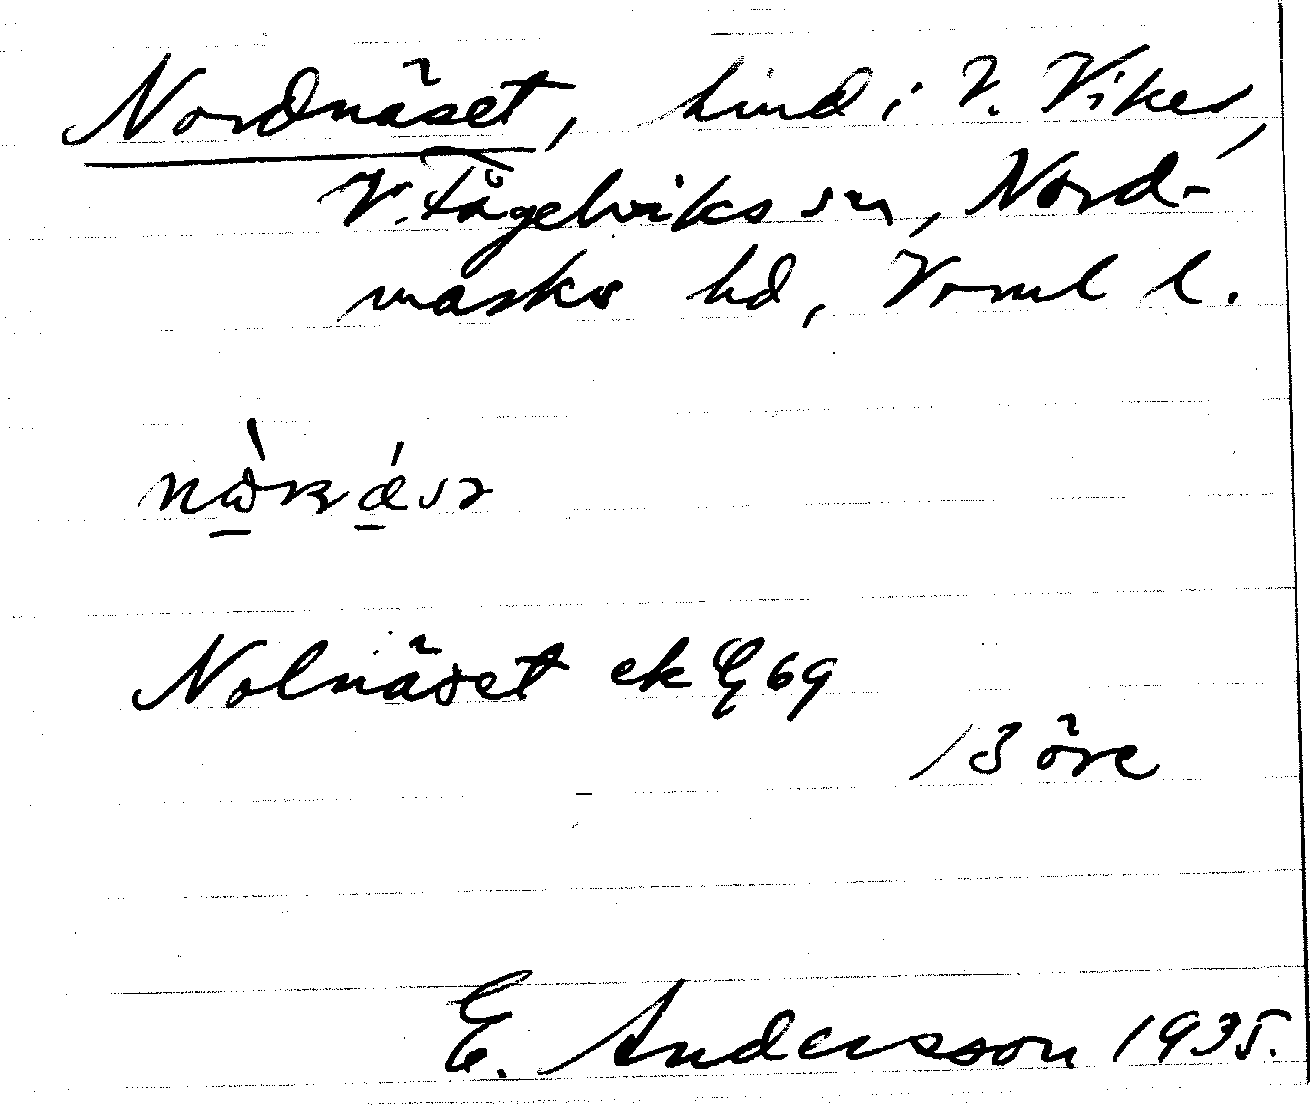 Nordnäset, hmd i V. Viker,
V. Fågelviks sn, Nord-
marks hd, Verml l.
Nolnäset ek Eg 69
/3 öre
E. Andersson 1935.